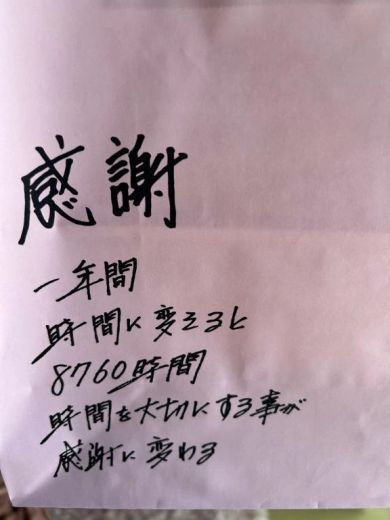 感謝
一年間
時間に変えると
8760時間
時間を大切にする事が
感謝に変わる